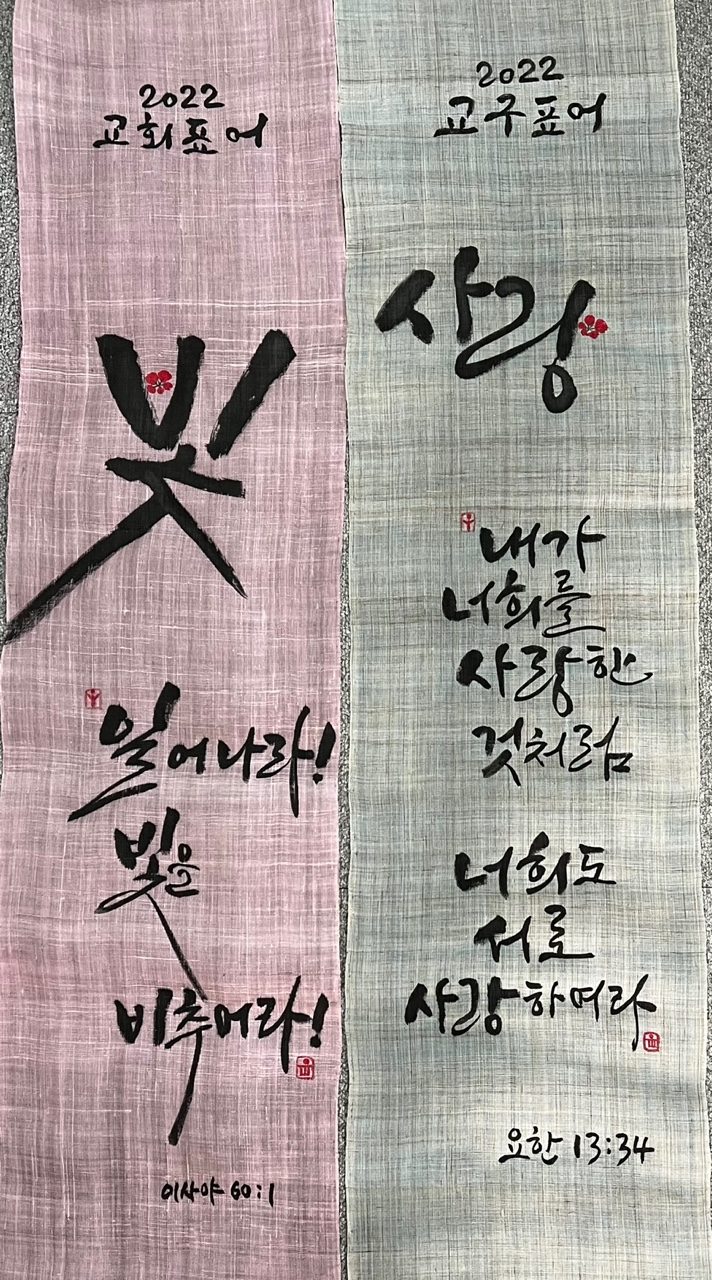 2022
교회표어
빛
일어나라!
빛을
비추어라!
이사야 60:1
2022
교구표어
사랑
내가
너희를
사랑한
것처럼
너희도
서로
사랑하여라
요한 13:34